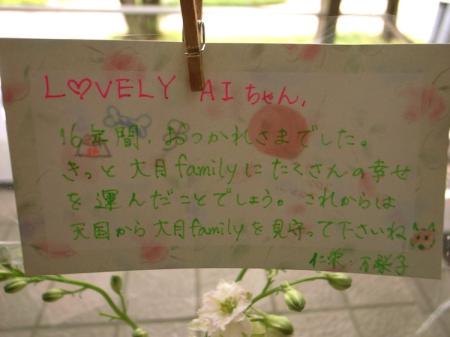 L♡VELY AIちゃん,
16年間、おつかれさまでした。
きっと大月familyにたくさんの幸せ
を運んだことでしょう。これからは
天国から大月familyを見守って下さいね